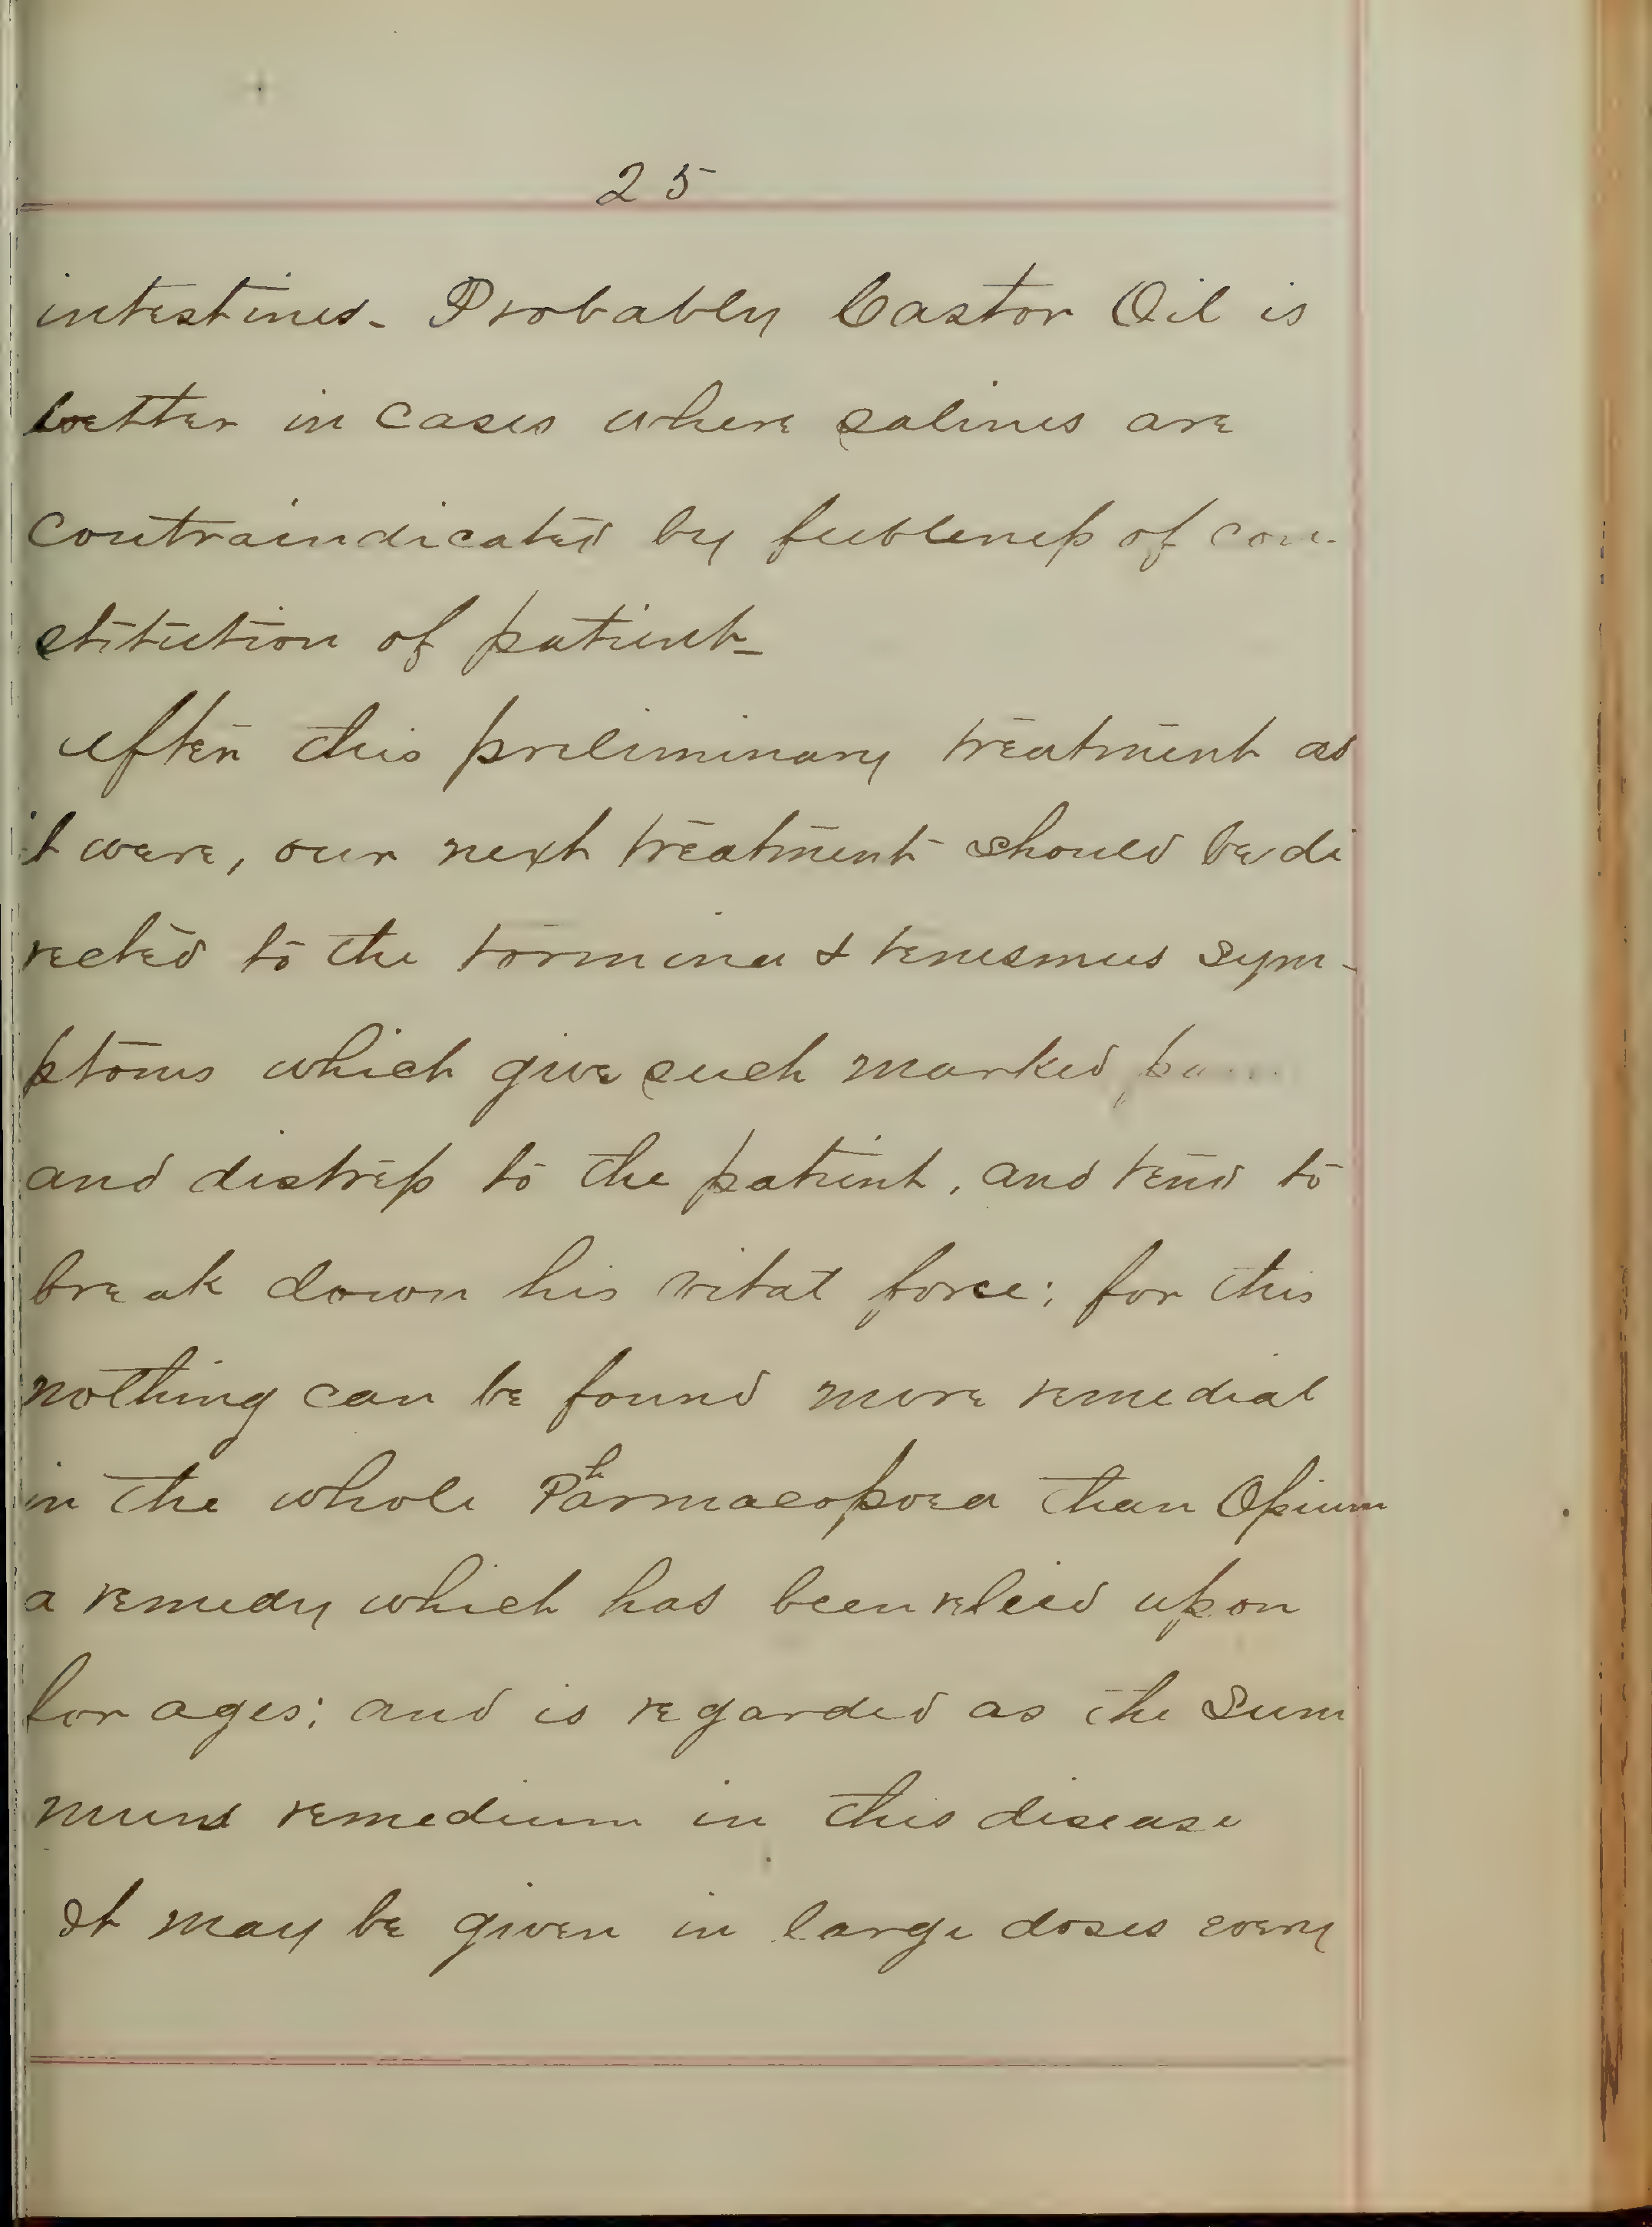 25
intestines. Probably Castor Oil is
better in cases where salines are
contraindicated by feebleness of con-
stitution of patient.
After this preliminary treatment as
it were, our next treatment should be di
rected to the tormina & tenesmus sym-
ptoms which give such marked
and distress to the patient, and tend to
break down his vital force; for this
nothing can be found more remedial
in the whole Pharmacopoea than Opium
a remedy which has been relied upon
for ages; and is regarded as the Sum
mum remedium in this disease
It may be given in large doses every